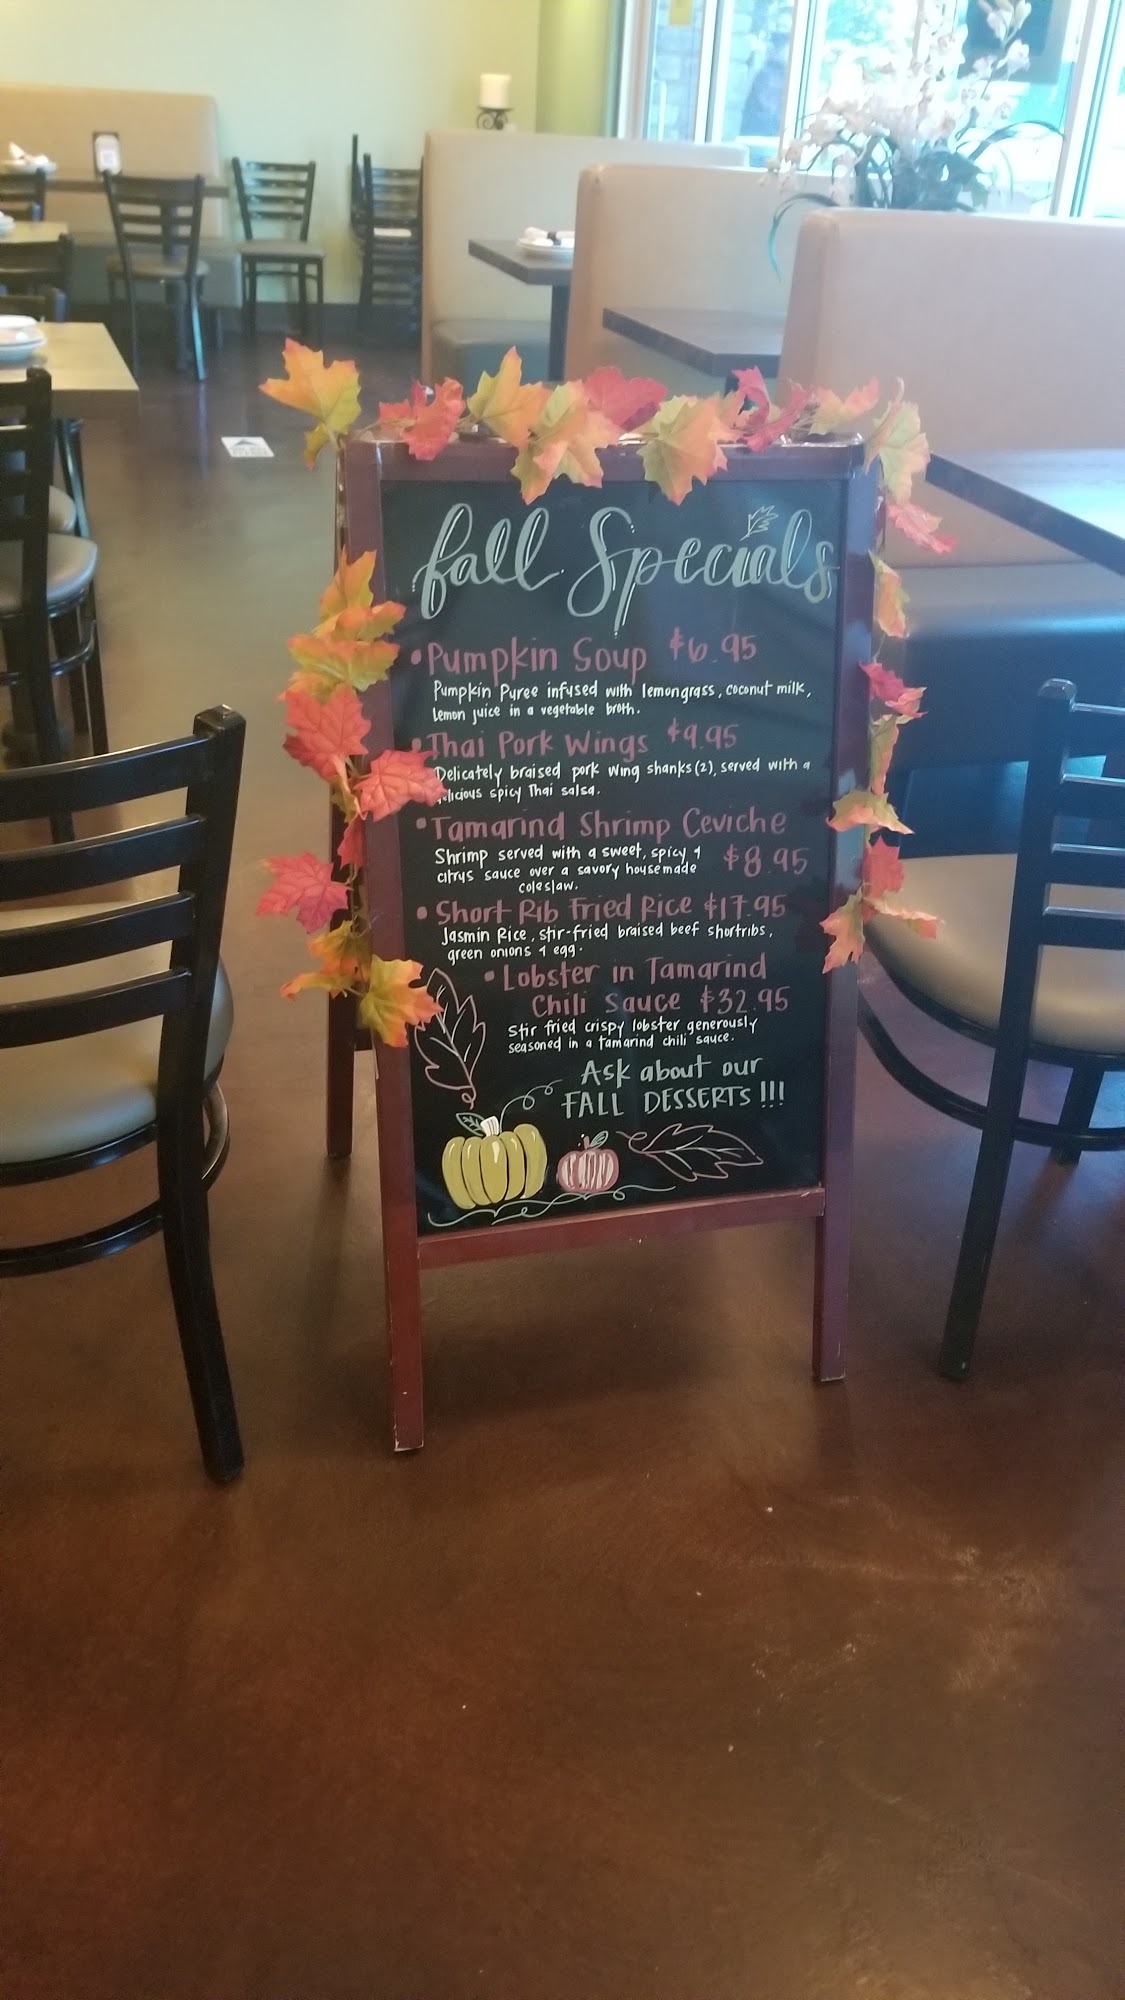 fall Specials
•Pumpkin Soup $6.95
Pumpkin Puree infused with lemongrass, coconut milk,
lemon juice in a vegetable broth.
•Thai Pork Wings $9.95
Delicately braised pork wing shanks (2), served with a
spicy Thai salsa.
•Tamarind Shrimp Ceviche
Shrimp served with a sweet, spicy & $8.95
citrus sauce over a savory housemade
coleslaw.
•Short Rib Fried Rice $17.95
Jasmin Rice, stir-fried braised beef shortribs,
green onions & egg.
•Lobster in Tamarind
Chili Sauce $32.95
Stir fried crispy lobster generously
seasoned in a tamarind chili sauce.
Ask about our
FALL DESSERTS!!!